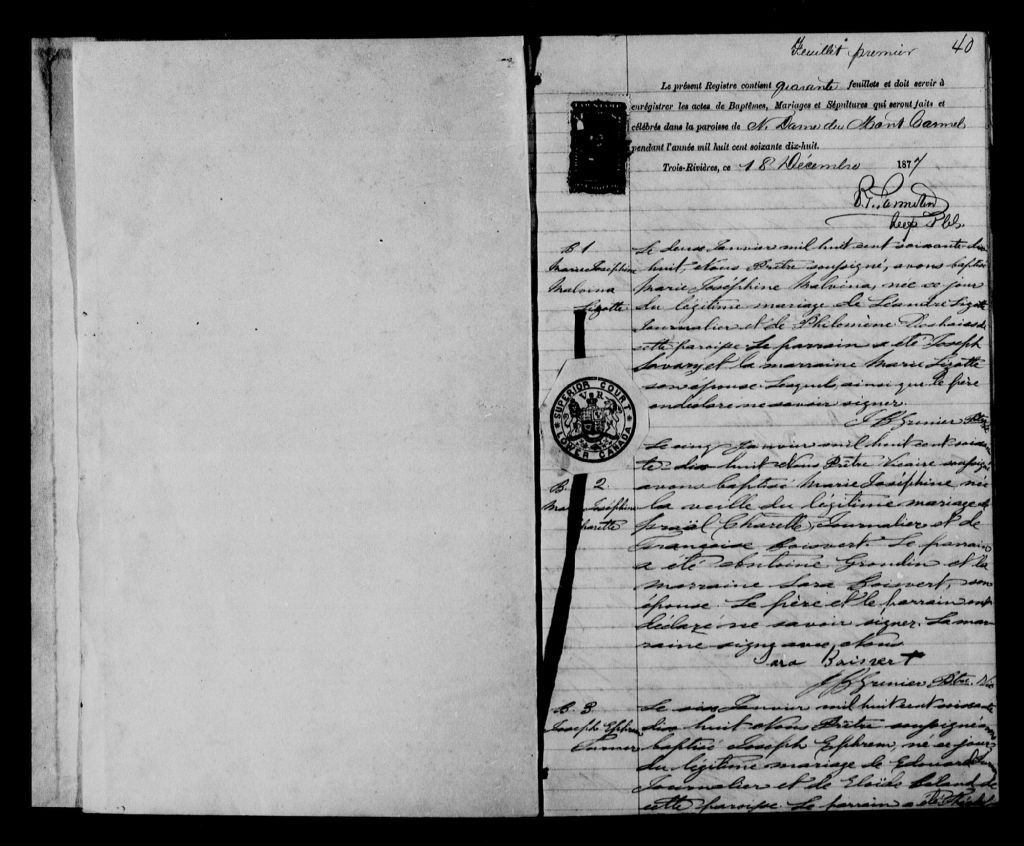 Feuillet premier 40
Le présent Registre contient quarante feuillets et doit servir à
enrégistrer les actes de Baptêmes, Mariages et Sépultures qui seront faits et
célébrés dans la paroisse de N. Dame du Mont Carmel
pendant l'année mil huit cent soixante dix-huit.
Trois-Rivières, ce 18 Décembre 1877
B 1
Marie Joséphine
Malvina
Lizotte
Le deux Janvier mil huit cent soixante dix
huit, Nous Prêtre soussigné, avons baptisé
Marie Joséphine Malvina, née ce jour
du légitime mariage de Léandre Lizotte
Journalier et de Philomène Deshaies de
cette paroisse. Le parrain a été Joseph
Savary et la marraine Marie Lizotte
son épouse. Lesquels, ainsi que le père
ont déclaré ne savoir signer.
J B Grenier Ptre
SUPERIOR COURT
V R
LOWER CANADA
B. 2.
Marie Joséphine
Charette
Le cinq Janvier mil huit cent soixan
te dix huit Nous Prêtre Vicaire soussigné
avons baptisé Marie Joséphine, née
la veille du légitime mariage de
Israël Charette, Journalier et de
Françoise Boisvert. Le parrain
a été Antoine Grondin et la
marraine Sara Boisvert, son
épouse. Le père et le parrain ont
déclaré ne savoir signer. La mar
raine signe avec Nous
Sara Boisvert
J B Grenier Ptre Vic
B. 3
Joseph Ephrem
Le six Janvier mil huit cent soixante
dix huit Nous Prêtre soussigné avons
baptisé Joseph Ephrem, né ce jour
du légitime mariage de Edouard
Journalier et de Eloïse Beland de
cette paroisse. Le parrain a été